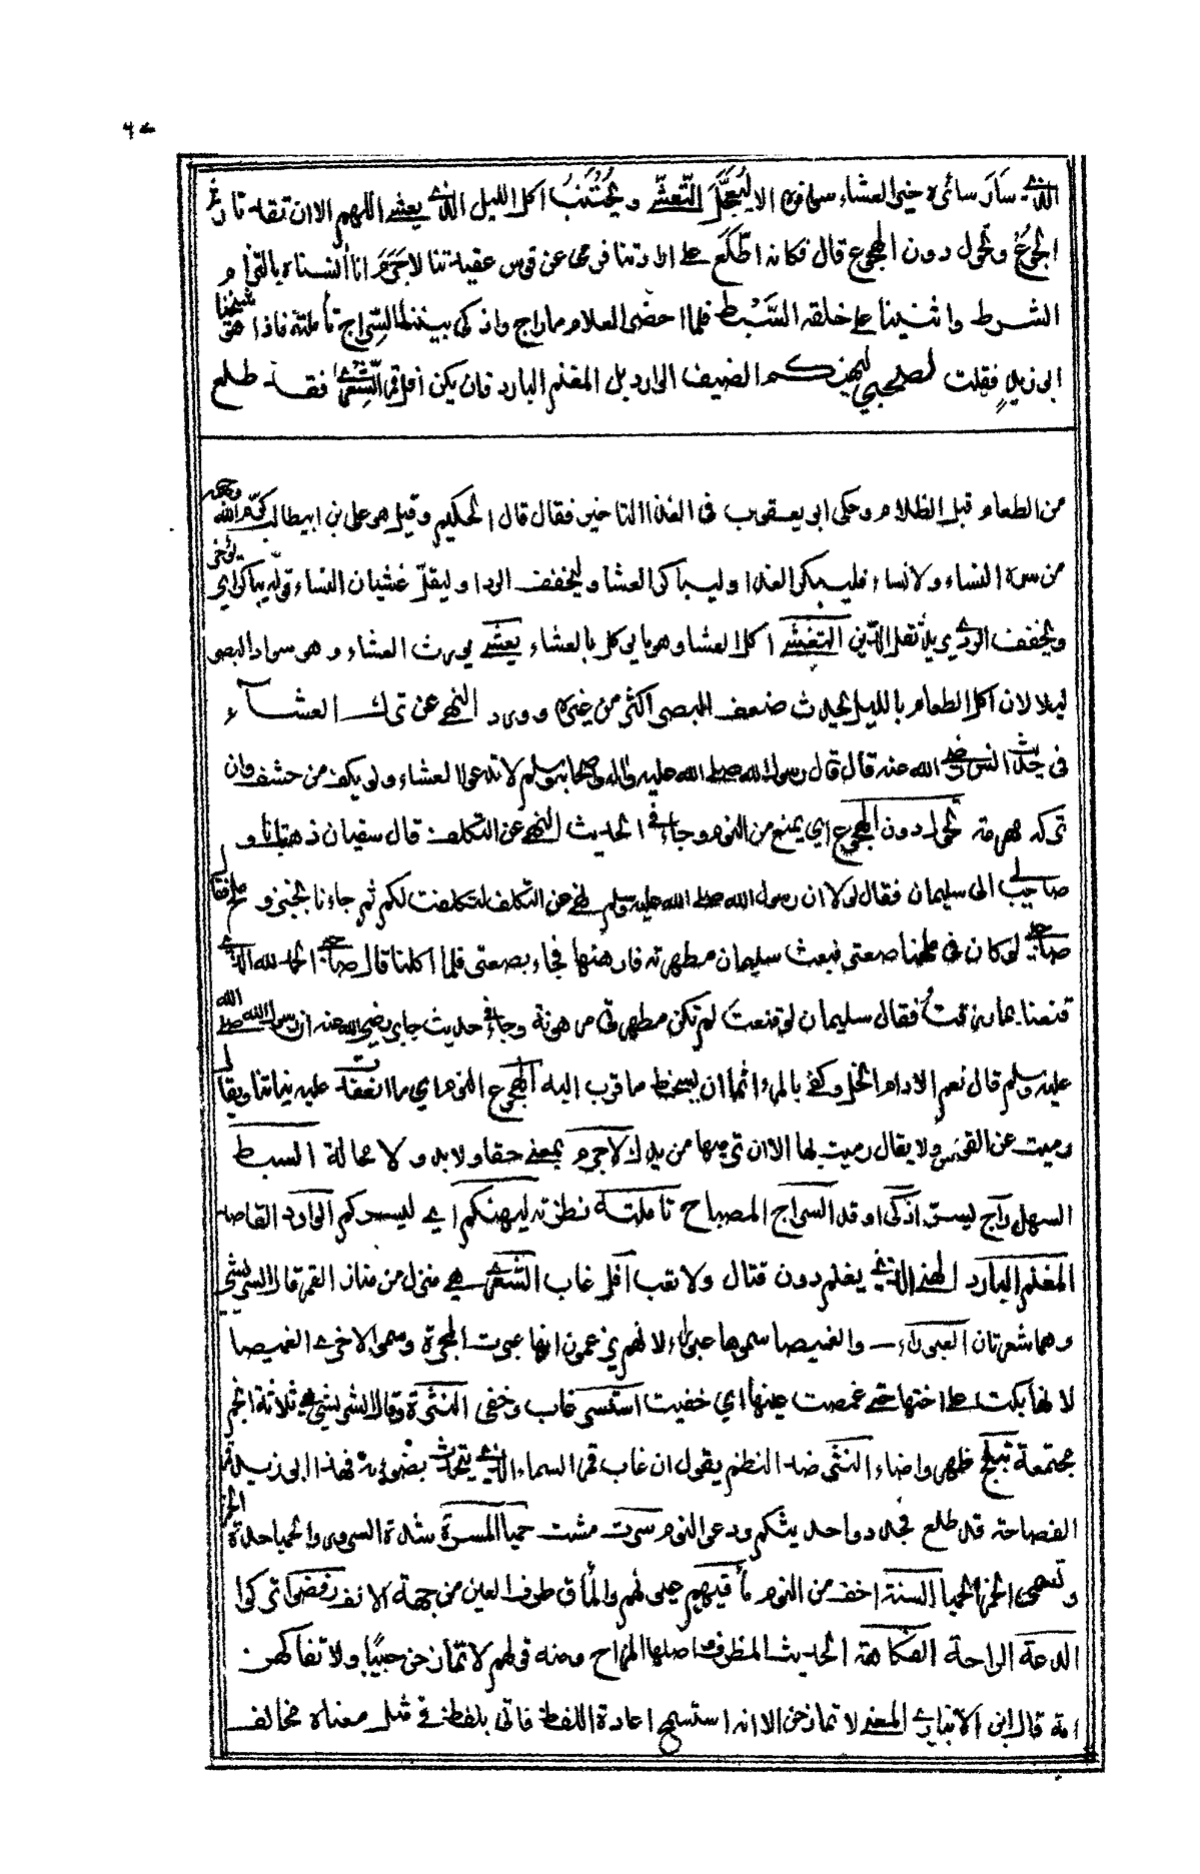 الذي سار سائره خير العشاء سوافره الا ليعجل التعشي ويجتنب اكل الليل الذي يعشي اللهم الا ان تقد نار
الجوع وتحول دون الهجوع قال فكانه اطلع على ارادتنا فرمى عن قوس عقيدتنا لا جرم انا آنسناه بالتزام
الشرط واثنينا على خلقه السبط فلما احضر الغلام ما راج واذكى بيننا السراج تأملته فاذا هو شيخنا
ابو زيد فقلت لصحبي ليهنكم الضيف الوارد بل المغنم البارد فان يكن افل قمر الشعرى فقد طلع
من الطعام قبل الظلام وحكى ابو يعقوب في الغذا التاخير فقال قال الحكيم وقيل هو علي بن ابيطالب كرم الله وجهه
من سره النساء ولا نساء فليبكر الغدا وليباكر العشا وليخفف الردا وليقل غشيان النساء قوله يباكر اي يؤخر
ويخفف الردي يلا ثقل الدين التعشي اكل العشا وهو ما يوكل بالعشاء يعشي يورث العشاء وهو سواد البصر
ليلا لان اكل الطعام بالليل يحدث ضعف البصر اكثر من غيره وورد النهي عن ترك العشاء
في حديث انس رضي الله عنه قال قال رسول الله صلى الله عليه واله وصحابه وسلم لا تدعوا العشاء ولو بكف من حشف فان
تركه مهرمة تحول دون الهجوع اي يمنع من النوم وجاء في الحديث النهي عن التكلف قال سفيان ذهبت انا و
صاحب لي الى سليمان فقال لولا ان رسول الله صلى الله عليه وسلم نهى عن التكلف لتكلفت لكم ثم جاءنا بخبز وملح فقال
صاحبي لو كان في ملحنا صعتر فبعث سليمان مطهرته فارهنها فجاء بصعتر فلما اكلنا قال صاحبي الحمد لله الذي
قنعنا بما رزقت فقال سليمان لو قنعت لم تكن مطهرتي مرهونة وجاء في حديث جابر رضي الله عنه ان رسول الله صلى الله
عليه وسلم قال نعم الادام الخل وكفى بالمرء اثما ان يسخط ما قرب اليه الهجوع النوم اي ما انعقدت عليه نياتنا ويقال
رميت عن القوس ولا يقال رميت بها الا ان ترميها من يدك لا جرم بمعنى حقا ولا بد ولا محالة السبط
السهل راج ليسر اذكى اوقد السراج المصباح تاملته نظرته ليهنكم اي ليسركم الوارد القاصد
المغنم البارد الهني الذي يغنم دون قتال ولا تعب افل غاب الشعرى هي منزل من منازل القمر قال الشريشي
وهما شعريان العبور والغميصا سموها عبور لانهم يزعمون انها عبرت المجرة وسموا الاخرى الغميصا
لانها بكت على اختها حتى غمصت عينها اي خفيت استسر غاب وخفى النثرة وقال الشريشي هي ثلاثة انجم
مجتمعة تبلج ظهر واضاء النثر ضد النظم يقول ان غاب قمر السماء الذي يتحدث بضوئه فهذا ابو زيد قمر
الفصاحة قد طلع فجدد واحد يثكم ودعى النوم سرت مشت حميا المسرة شدة السرور والحميا حدة الخمر
وتسمى الخمر الحميا السنة اخف من النوم مآقيهم عيونهم والمآق طرف العين من جهة الانف رفضوا تركوا
الدعة الراحة الفكاهة الحديث المظرف اصلها المزاح ومنه قولهم لا تمازحن صبيا ولا تفاكهن
امة قال ابن الانباري المعنى لا تمازحن الا انه استسمج اعادة اللفظ فاتى بلفظ في مثل معناه مخالف